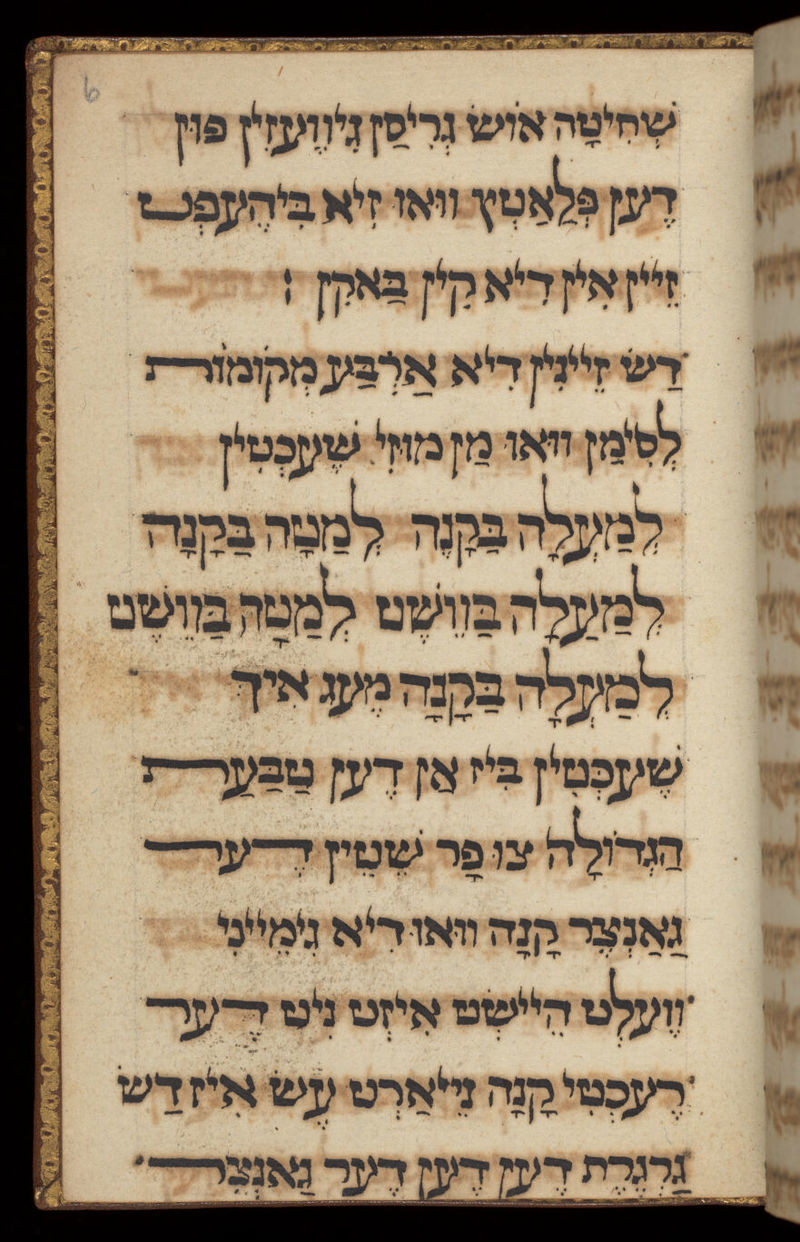 6
שְׁחִיטָה אוֹשׂ גְרִיסַן גִיוֶועזִין פוּן
דֶען פְּלַאַטְץ וואו זִיא בִּיהֶעפְט
זַיין אִין דִיא קִין בַּאקִן :
דַשׂ זֵיינִין דִיא אַרְבַּע מְקוֹמוֹת
לְסִימַן וואו מַן מוּזִי שֶׁעכְטִין
לְמַעְלָה בַּקָנֶה לְמַטָה בַּקָנָה
לְמַעַלָה בַּוֵושֶׁט לְמַטָה בַּוֵושֶׁט
לְמַעְלָה בַּקָנָה מֶעג אִיךְ
שֶׁעכְטִין בִּיז אַן דֶען טַבַּעַת
הַגְדוֹלָה צו פָר שְׁטֵין דֶער
גַאַנְצֶר קָנָה וואו דִיא גִימֵיינִי
וֶועלְט הֵיישְׂט אִיזְט נִיט דֶער
רֶעכְטִי קָנָה נֵייאַרְט עֶשׂ אִיז דַשׂ
גַרְגֶרֶת דֶען דֶען דֶער גַאנְצֶר